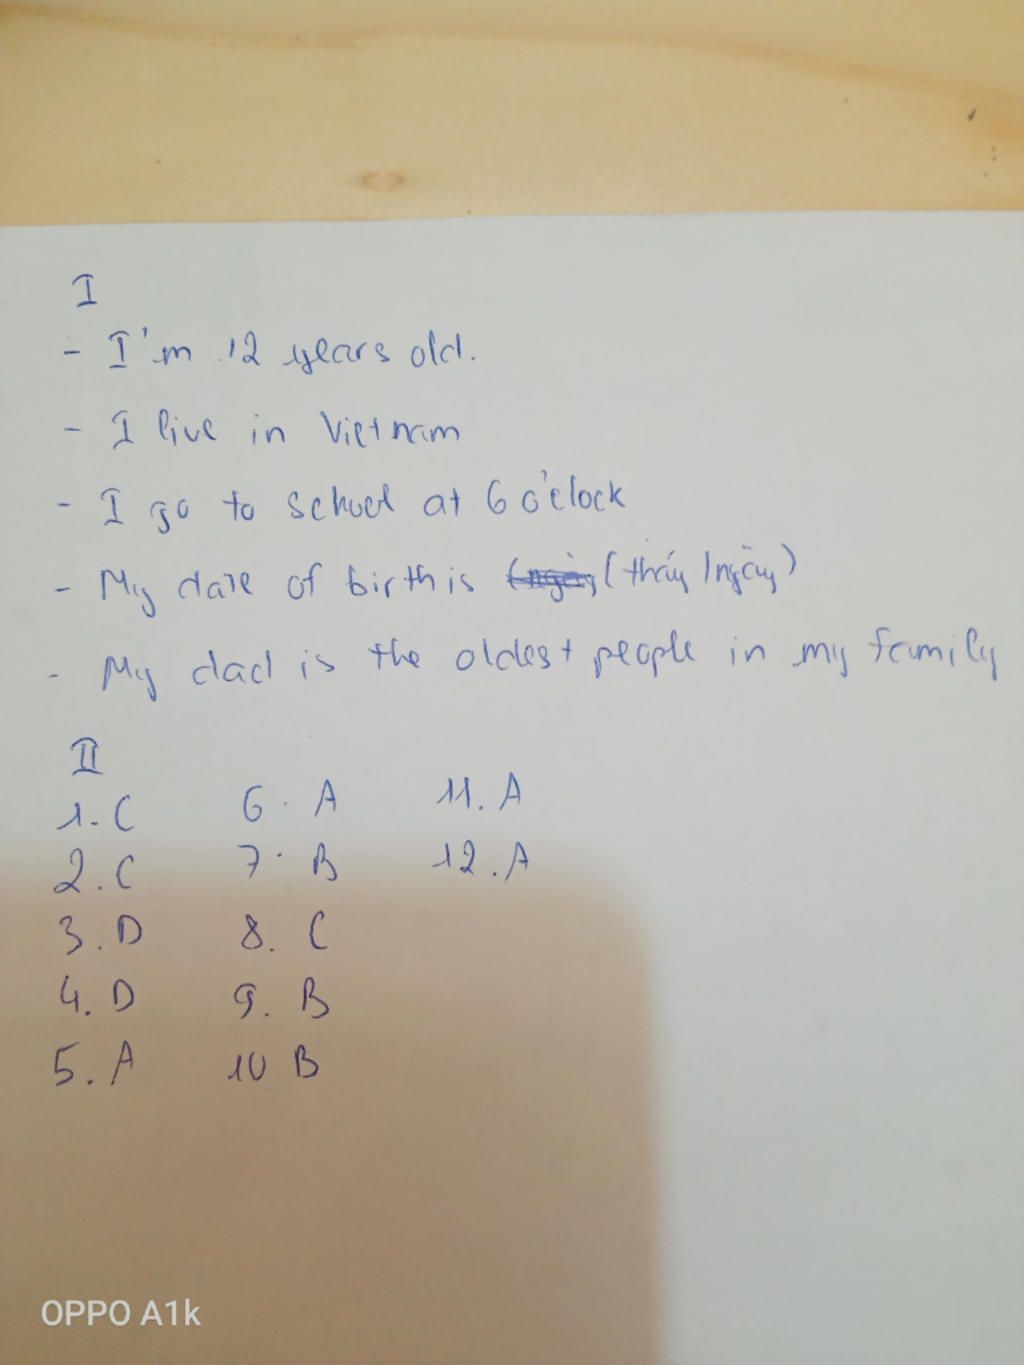 I
- I'm 12 years old.
- I live in Vietnam
- I go to school at 6 o'clock
- My date of birth is (tháng/ngày)
- My dad is the oldest people in my family
II
1. C 6. A 11. A
2. C 7. B 12. A
3. D 8. C
4. D 9. B
5. A 10 B
OPPO A1k